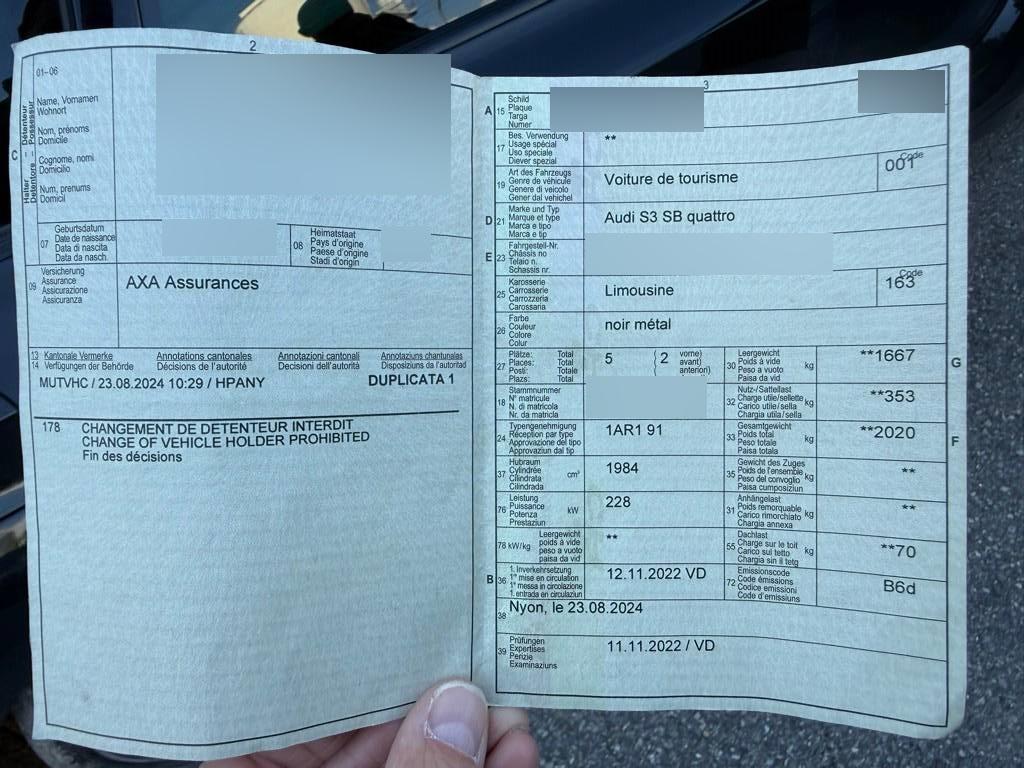 2
01–06
Name, Vornamen
Wohnort
Nom, prénoms
Domicile
Cognome, nomi
Domicilio
Num, prenums
Domicil
C
Halter Détenteur
Detentore Possessur
07
Geburtsdatum
Date de naissance
Data di nascita
Data da nasch.
08
Heimatstaat
Pays d'origine
Paese d'origine
Stadi d'origin
09
Versicherung
Assurance
Assicurazione
Assicuranza
AXA Assurances
13 Kantonale Vermerke Annotations cantonales Annotazioni cantonali Annotaziuns chantunales
14 Verfügungen der Behörde Décisions de l'autorité Decisioni dell'autorità Disposiziuns da l'autoritad
MUTVHC / 23.08.2024 10:29 / HPANY DUPLICATA 1
178 CHANGEMENT DE DETENTEUR INTERDIT
CHANGE OF VEHICLE HOLDER PROHIBITED
Fin des décisions
3
A 15
Schild
Plaque
Targa
Numer
17
Bes. Verwendung
Usage spécial
Uso speciale
Diever spezial
**
19
Art des Fahrzeugs
Genre de véhicule
Genere di veicolo
Gener dal vehichel
Voiture de tourisme
Code
001
D 21
Marke und Typ
Marque et type
Marca e tipo
Marca e tip
Audi S3 SB quattro
E 23
Fahrgestell-Nr.
Châssis no
Telaio n.
Schassis nr.
25
Karosserie
Carrosserie
Carrozzeria
Carossaria
Limousine
Code
163
26
Farbe
Couleur
Colore
Colur
noir métal
27
Plätze: Total
Places: Total
Posti: Totale
Plazs: Total
5 { 2 vorne)
avant)
anteriori)
30
Leergewicht
Poids à vide
Peso a vuoto
Paisa da vid
kg
**1667
G
18
Stammnummer
N° matricule
N. di matricola
Nr. da matricla
32
Nutz-/Sattellast
Charge utile/sellette
Carico utile/sella
Chargia utila/sella
kg
**353
24
Typengenehmigung
Réception par type
Approvazione del tipo
Approvaziun dal tip
1AR1 91
33
Gesamtgewicht
Poids total
Peso totale
Paisa totala
kg
**2020
F
37
Hubraum
Cylindrée
Cilindrata
Cilindrada
cm³
1984
35
Gewicht des Zuges
Poids de l'ensemble
Peso del convoglio
Paisa cumposiziun
kg
**
76
Leistung
Puissance
Potenza
Prestaziun
kW
228
31
Anhängelast
Poids remorquable
Carico rimorchiato
Chargia annexa
kg
**
78 kW/kg
Leergewicht
poids à vide
peso a vuoto
paisa da vid
**
55
Dachlast
Charge sur le toit
Carico sul tetto
Chargia sin il tetg
kg
**70
B 36
1. Inverkehrsetzung
1re mise en circulation
1a messa in circolazione
1. entrada en circulaziun
12.11.2022 VD
72
Emissionscode
Code émissions
Codice emissioni
Code d'emissiuns
B6d
38
Nyon, le 23.08.2024
39
Prüfungen
Expertises
Perizie
Examinaziuns
11.11.2022 / VD